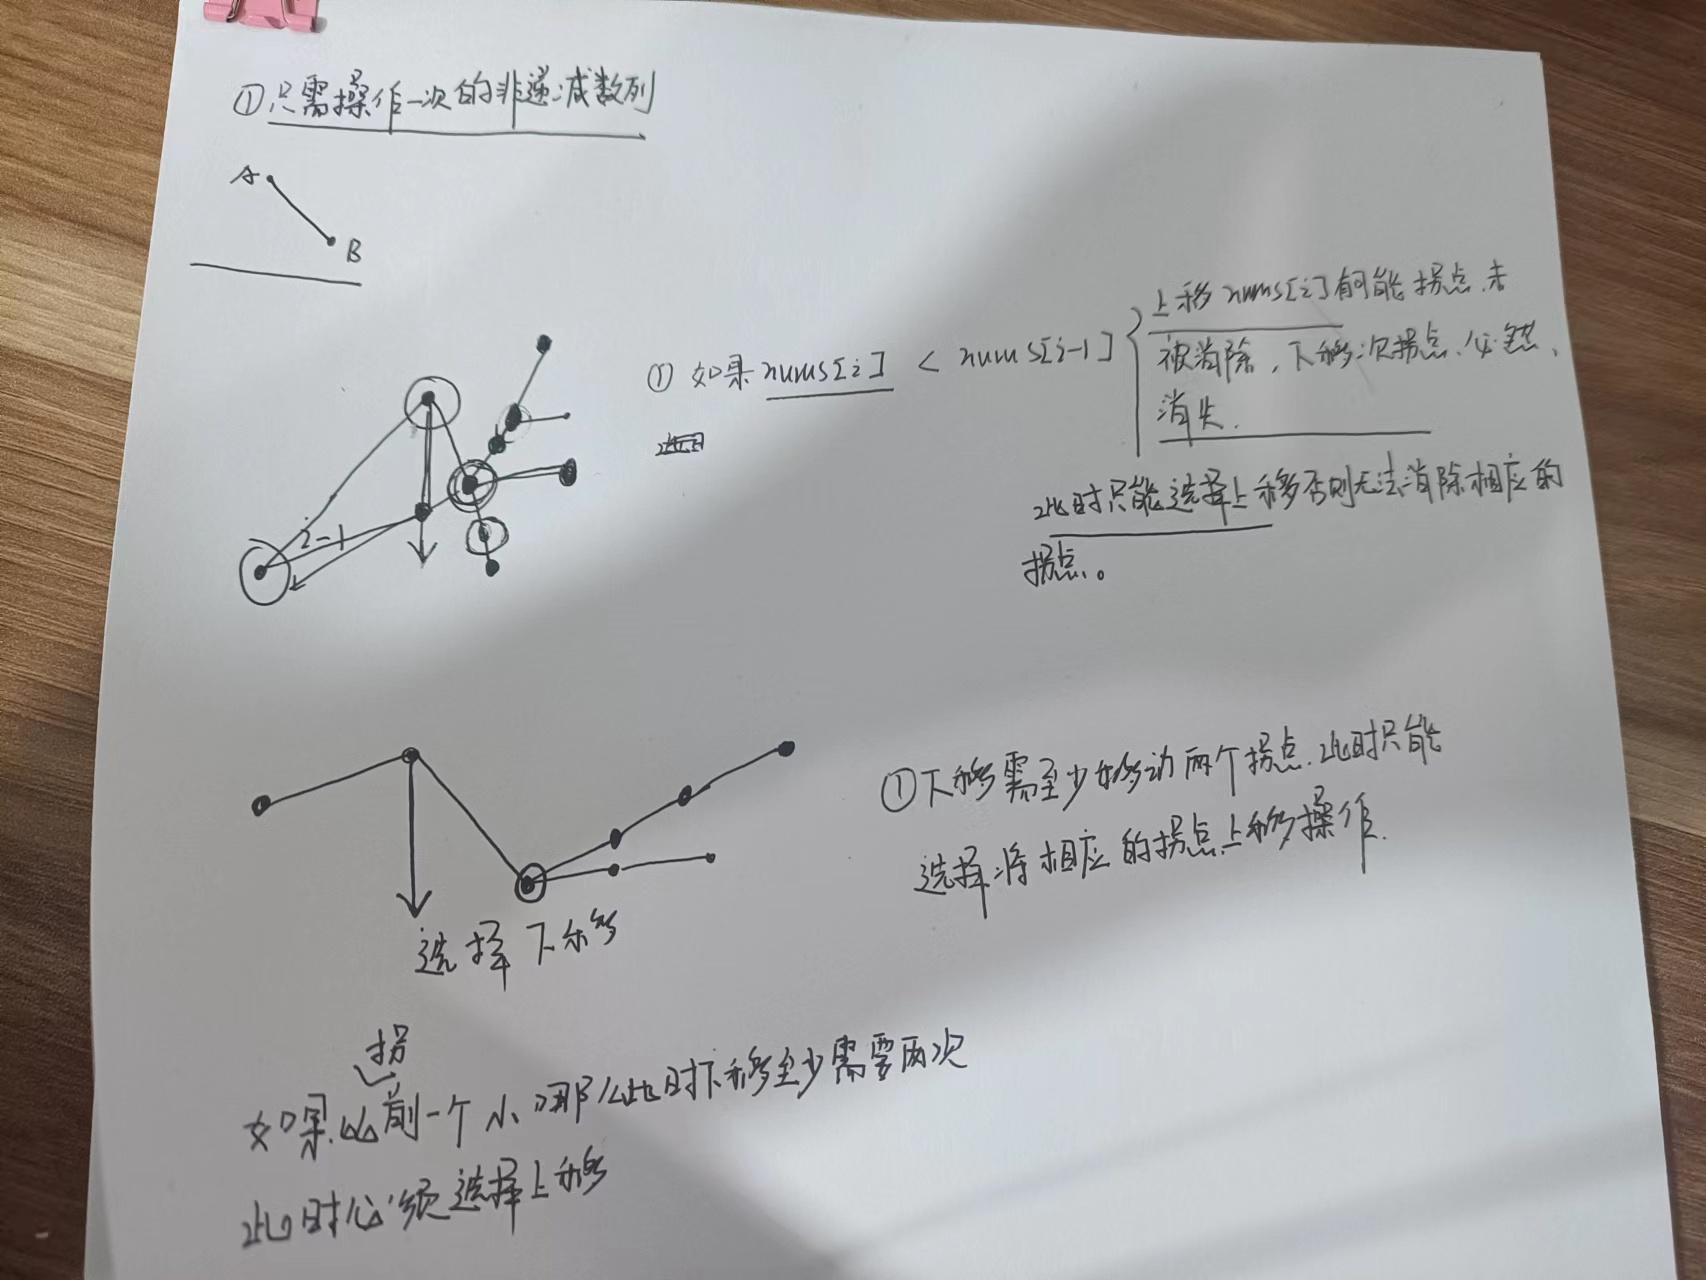 ①只需操作一次的非递减数列
A
B
① 如果 nums[i] < nums[i-1]
上移 nums[i] 有可能 拐点 未
被消除，下移 次拐点 必然
消失.
此时只能选择上移否则无法消除相应的
拐点。
i-1
①下移需至少移动两个拐点.此时只能
选择将相应的拐点上移操作.
选择下移
拐
如果比前一个小 那么此时下移至少需要两次
此时必须选择上移